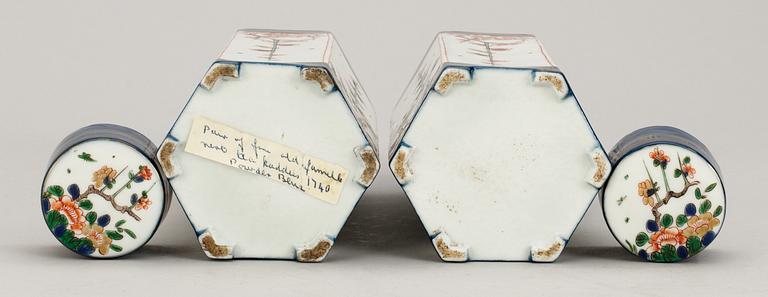 Pair of fine old famille
vert tea kaddies
Powder Blue 1740